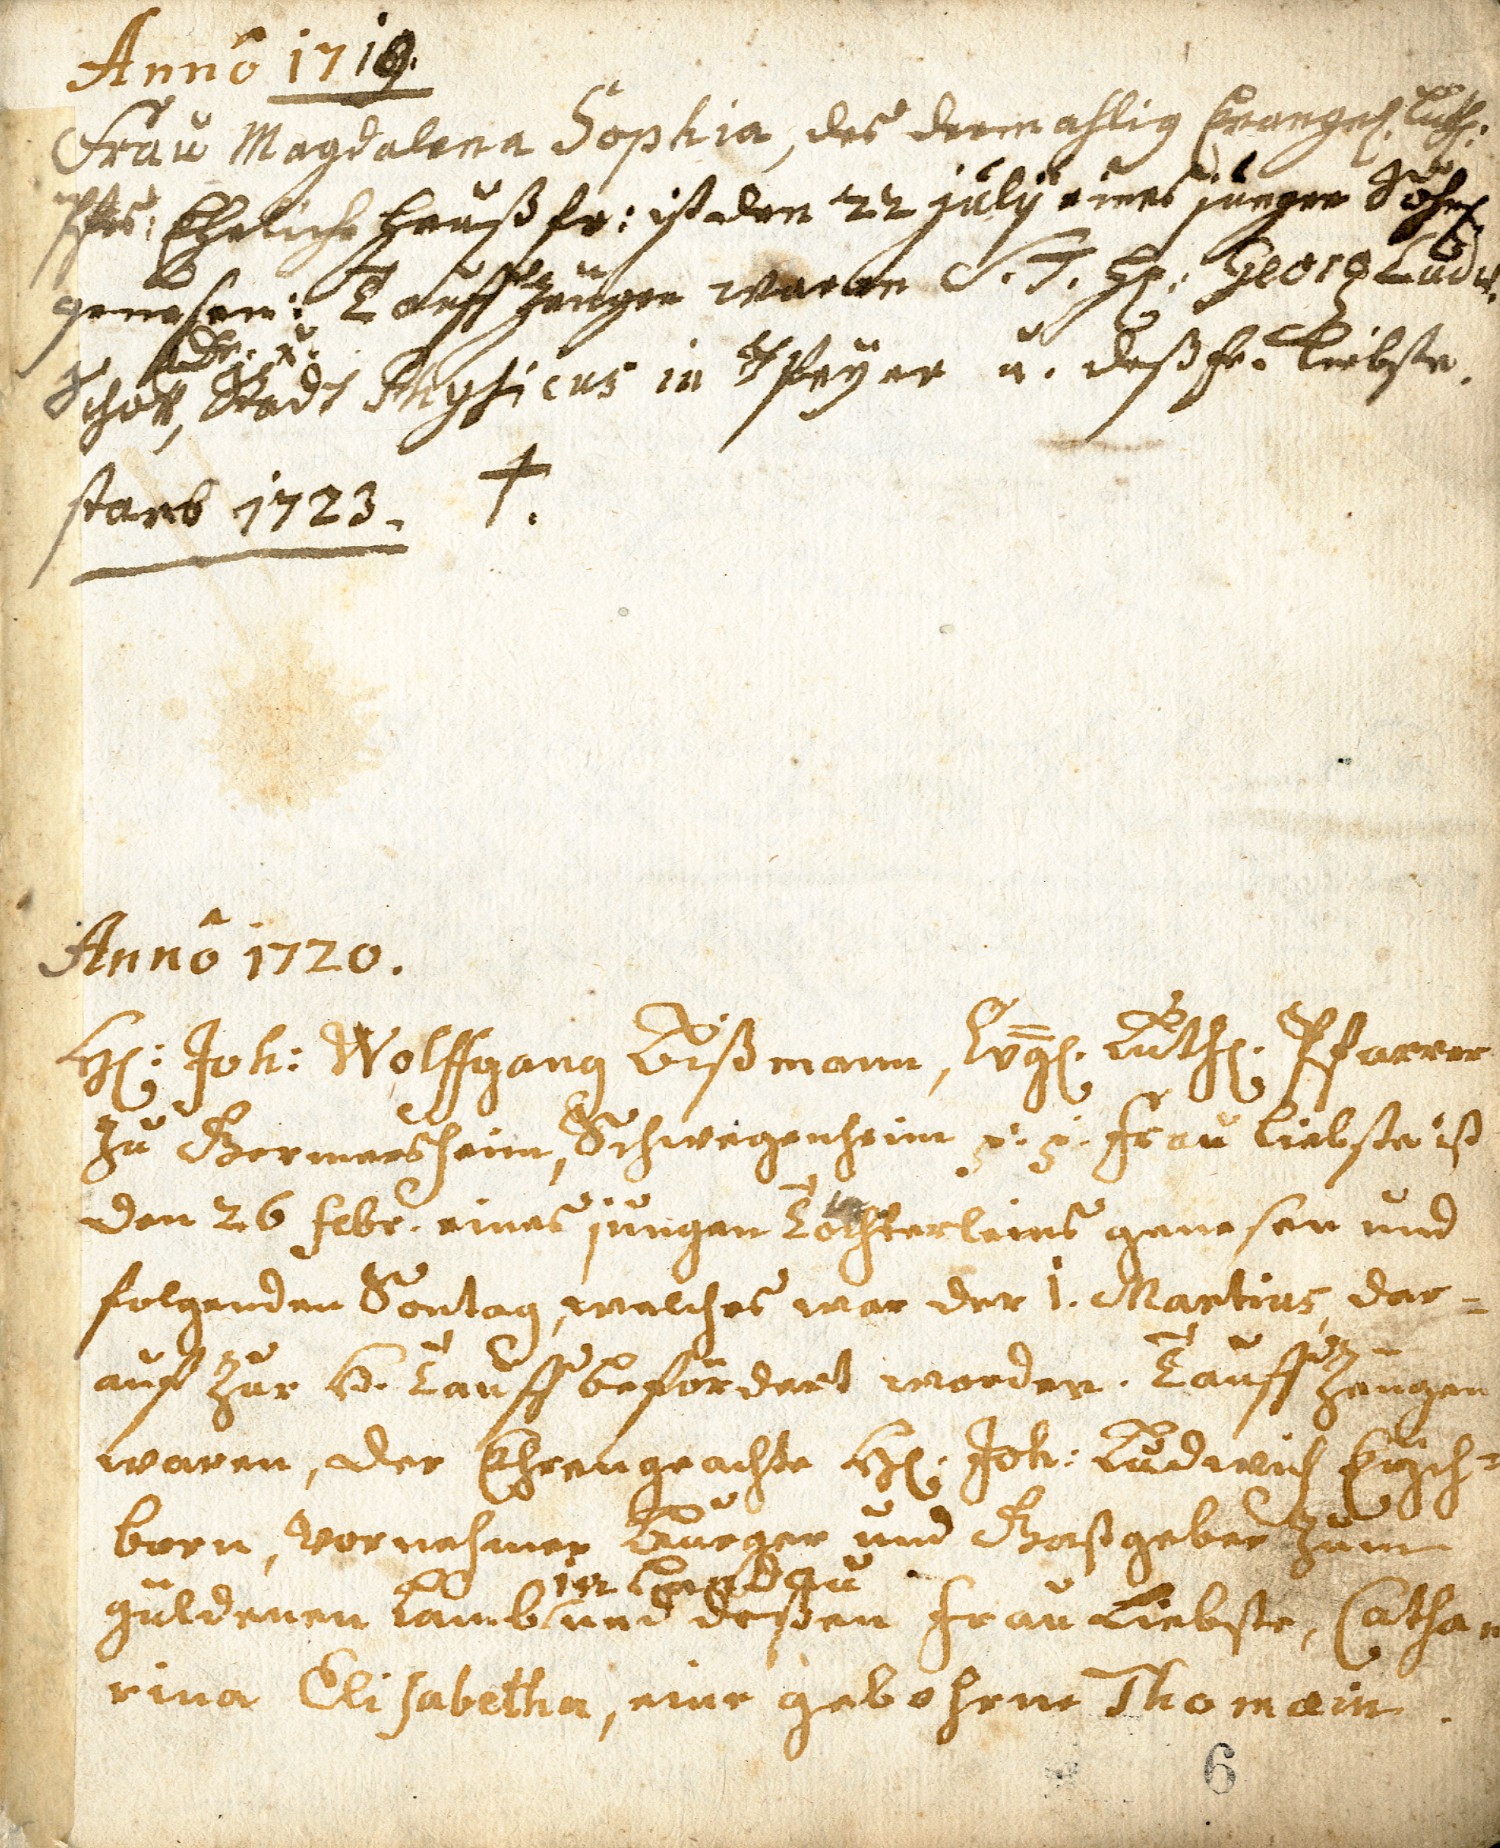 Annô 1719.
Frau Magdalena Sophia, des dermahlig Evangel. Luth.
Pfrs: Eheliche Haußfr: ist den 22 julij eines jungen Söhnl.
genesen: Tauffzeugen waren S. T. H. Georg Ludw.
Adv. u.
Stadt Physicus in Speyer u. deßen fr. Liebste.
starb 1723. †.
Annô 1720.
H. Joh: Wolffgang Bißmann, Evgl. Luth. Pfarrer
zu Germersheim, Schwegenheim p. p. Frau Liebste ist
den 26 febr. eines jungen Töchterleins genesen und
folgenden Sontag, welches war der 1. Martius, dar=
auf zur H. Tauff befördert worden. Tauffzeugen
waren, der Ehrengeachte H. Joh: Ludwich Kirsch=
born, vornehmer Burger und Gastgeber zum
in Landau
güldenen Lamb und deßen Frau Liebste, Catha
rina Elisabetha, eine gebohrne Thomäin.
6